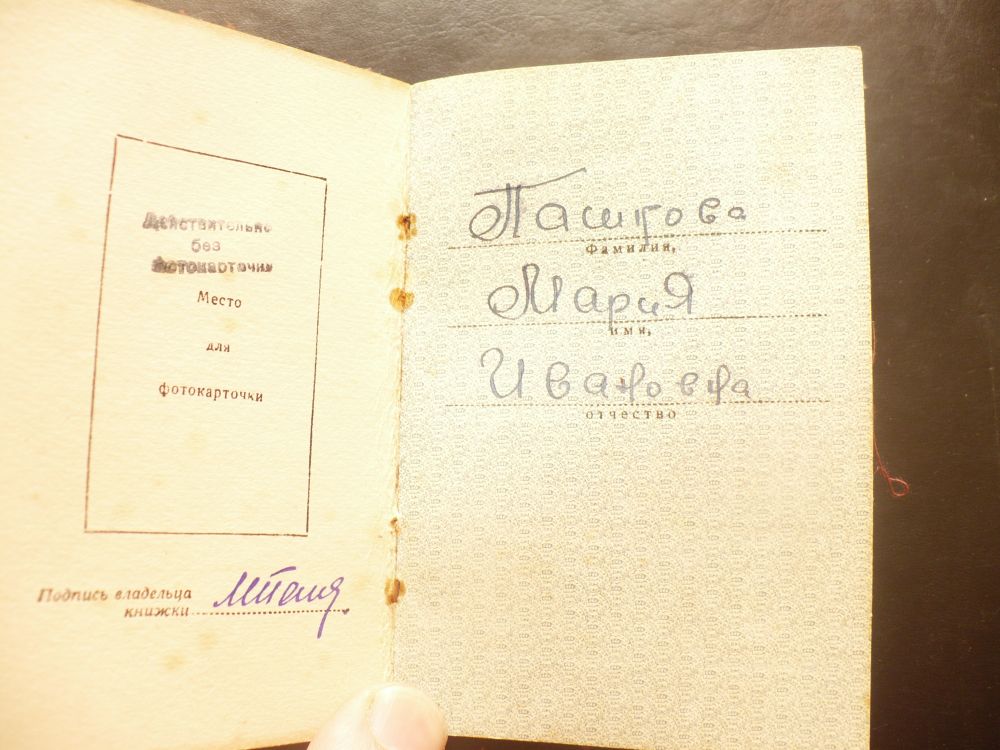 Действительно
без
фотокарточки
Место
для
фотокарточки
Подпись владельца
книжки
Пашкова
Фамилия,
Мария
имя,
Ивановна
отчество